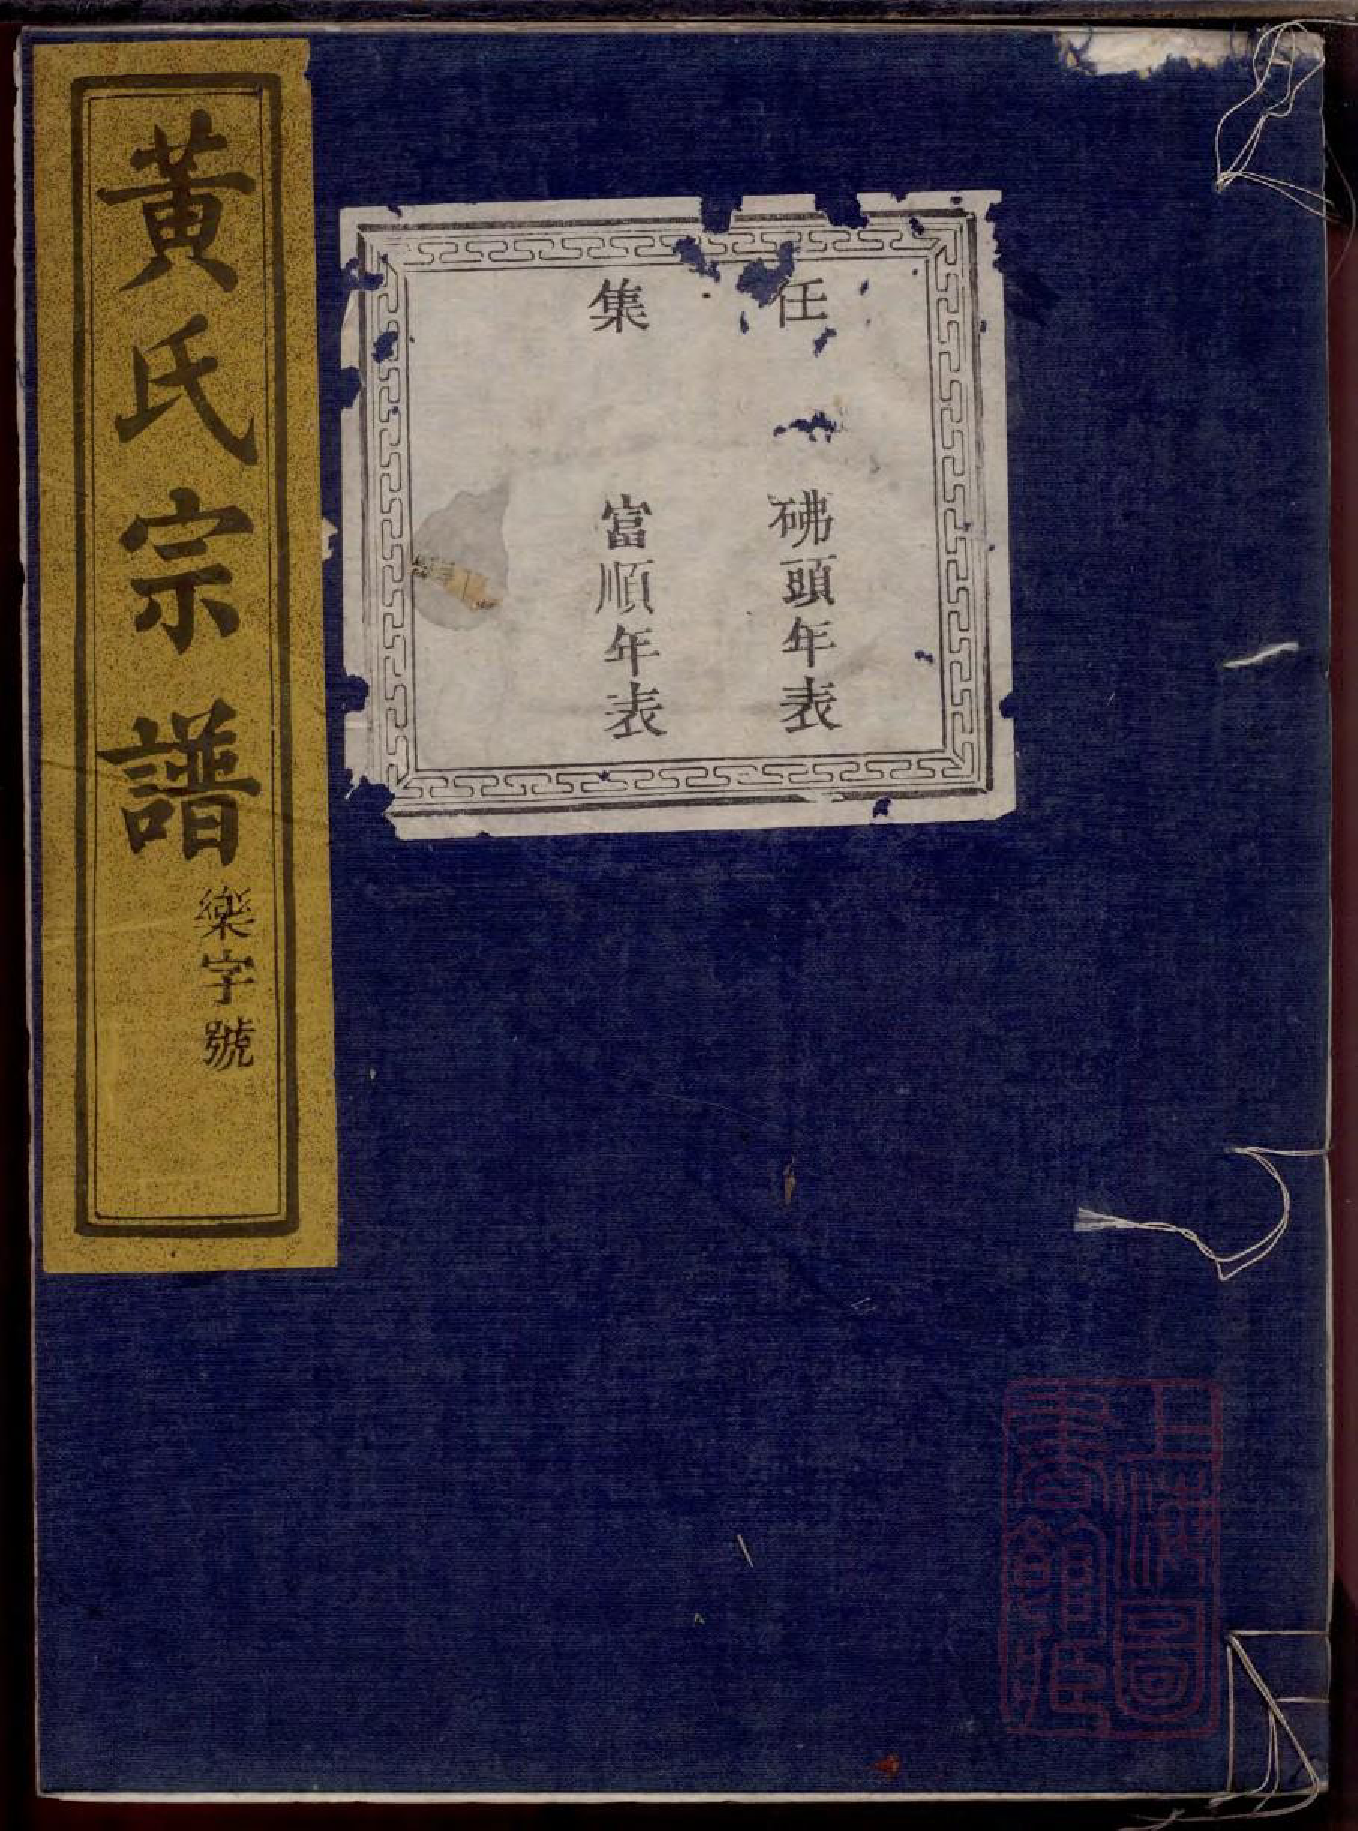 黃氏宗譜
樂字號
壬 砩頭年表
集 富順年表
上海圖
書館藏